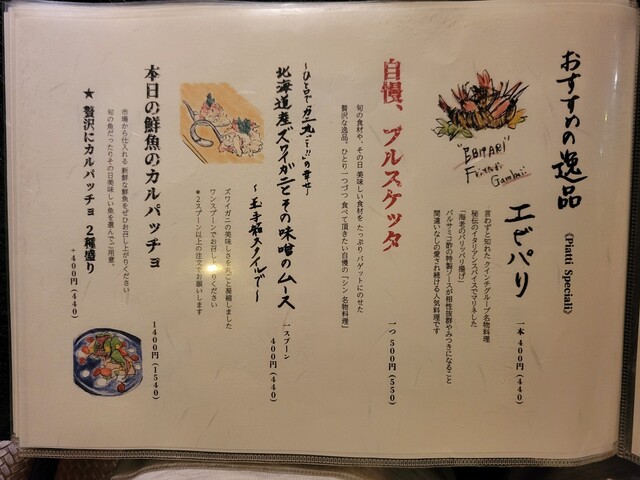 おすすめの逸品
《Piatti Speciali》
エビパリ
一本 400円 (440)
言わずと知れた クインチグループ名物料理
秘伝のイタリアンスパイスでマリネした
「海老のパリパリ揚げ」
バルサミコ酢の特製ソースが相性抜群やみつきになること
間違いなしの愛され続ける人気料理です
"EBIPARI"
Gamberi
自慢、ブルスケッタ
一つ 500円 (550)
旬の食材や、その日 美味しい食材を たっぷり バゲットにのせた
贅沢な逸品。ひとり一つづつ 食べて頂きたい自慢の「シン名物料理」
北海道産ズワイガニとその味噌のムース
一スプーン
400円 (440)
ズワイガニの美味しさを丸ごと凝縮しました
ワンスプーンでお召し上がりください
*2スプーン以上の注文でお願いします
本日の鮮魚のカルパッチョ
1400円 (1540)
市場から仕入れる 新鮮な鮮魚をぜひお召し上がりください。
旬の魚だったりその日美味しい魚を選んでご用意。
★ 贅沢にカルパッチョ 2種盛り
+400円 (440)